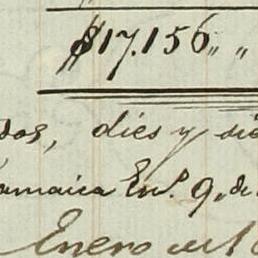 $17.156 " "
dos, dies y
amaica En.º 9, de
Enero del